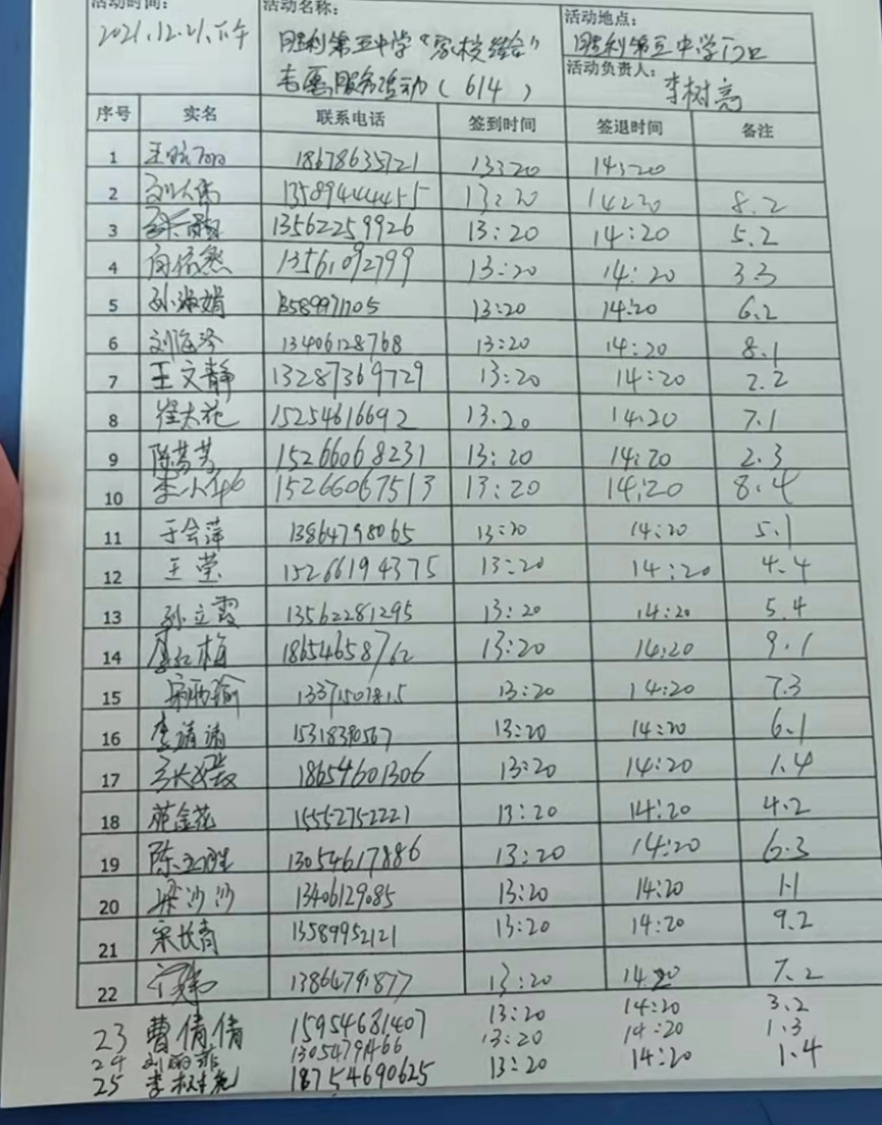 活动时间：
2021.12.21.下午
活动名称：
胜利第五中学“家校结合”
志愿服务活动（614）
活动地点：
胜利第五中学门口
活动负责人：
李树亮
序号 实名 联系电话 签到时间 签退时间 备注
1 18678635721 13:20 14:20
2 13589444455 13:20 14:20 8.2
3 13562259926 13:20 14:20 5.2
4 13561092799 13:20 14:20 3.3
5 孙淑娟 13589971705 13:20 14:20 6.2
6 刘海玲 13406128768 13:20 14:20 8.1
7 王文静 13287369729 13:20 14:20 2.2
8 崔大花 15254616692 13.20 14.20 7.1
9 陈芳芳 15266068231 13:20 14:20 2.3
10 15266067513 13:20 14:20 8.4
11 于会萍 13864798065 13:20 14:20 5.1
12 王莹 15266194375 13:20 14:20 4.4
13 孙立霞 13562281295 13:20 14:20 5.4
14 18654658762 13:20 14:20 9.1
15 13371507815 13:20 14:20 7.3
16 李靖靖 15318390567 13:20 14:20 6.1
17 18654601306 13:20 14:20 1.4
18 范金花 15552752221 13:20 14:20 4.2
19 13054617886 13:20 14:20 6.3
20 梁沙沙 13406129085 13:20 14:20 1.1
21 宋长青 13589952121 13:20 14:20 9.2
22 13864791877 13:20 14:20 7.2
23 曹倩倩 15954681407 13:20 14:20 3.2
24 刘丽菲 13054791466 13:20 14:20 1.3
25 李树亮 18754690625 13:20 14:20 1.4